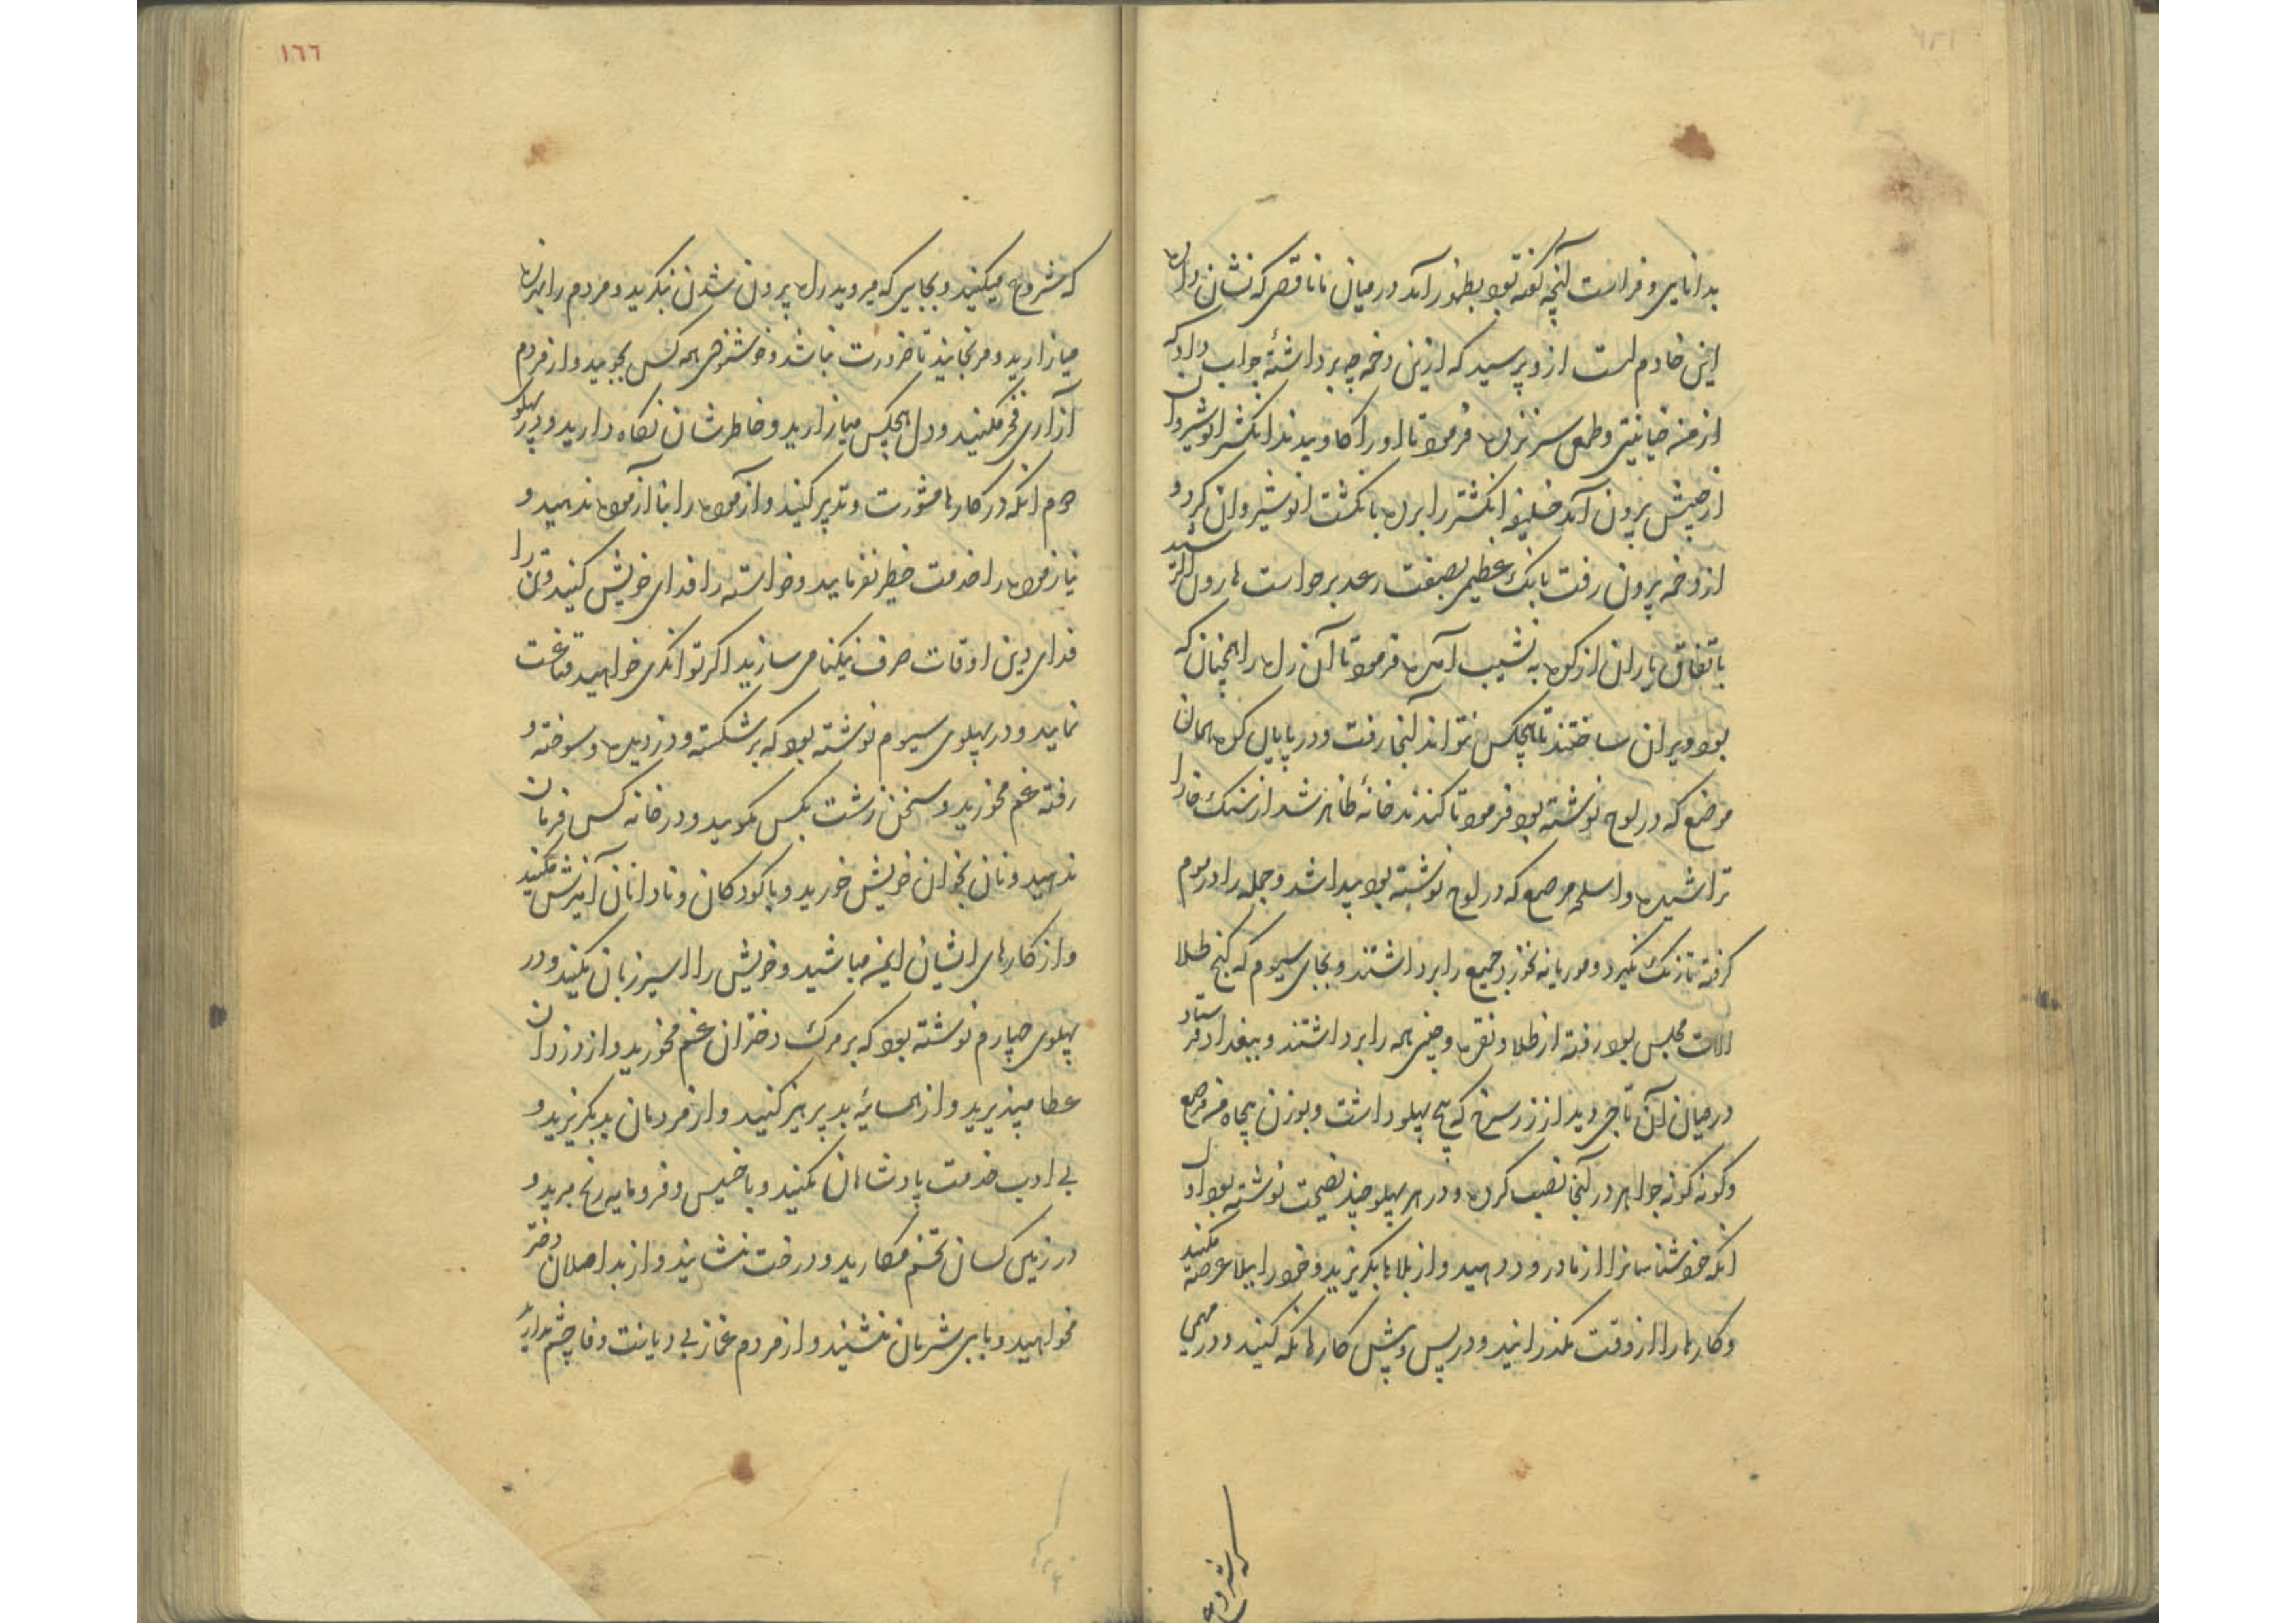 بدانایی و فراست آنچه گفته بود بظهور آمد در میان ما ناقصی که نشان داده
این خادم است ازو پرسید که ازین دخمه چه برداشتهٔ جواب داد که
از من خیانتی و طمعی سر نزده فرمود تا او را کاویدند انگشتر انوشیروان
از جیبش بیرون آمد خلیفه انگشتر را برده بانگشت انوشیروان کرد و
از دخمه بیرون رفت بانک عظیمی بصفت رعد برخواست هارون الرشید
باتفاق یاران از کوه به نشیب آمده فرمود تا آن راه را همچنان که
بود ویران ساختند تا هیچکس نتواند آنجا رفت و در پایان کوه همان
موضع که در لوح نوشته بود فرمود تا کندند خانهٔ ظاهر شد از سنک خارا
تراشیده و اسلحه مرصع که در لوح نوشته بود پیدا شد و جمله را در موم
گرفته تا زنک نگیرد و موریانه نخورد جمیع را برداشتند و بجای سیوم که گنج طلا
الات مجلس بود رفته از طلا و نقره و چینی همه را برداشتند و ببغداد فرستاد
در میان آن تاجی دید از زر سرخ که پنج پهلو داشت و بوزن پنجاه من مرصع
و گونه گونه جواهر در آنجا نصب کرده و در هر پهلو چند نصیحت نوشته بود اول
انکه خوشناسانرا از ما درود دهید و از بلاها بگریزید و خود را ببلا عرصه مکنید
و کارها را از وقت مگذرانید و در پس و پیش کارها نگه کنید و در مهمی
که شروع
١٦٦
که شروع میکنید و بجایی که میروید راه بیرون شدن بنگرید و مردم را بهرزه
میازارید و مرنجانید تا ضرورت نباشد و خوشنودی همه کس بجویید و از مردم
آزاری فخر مکنید و دل هیچکس میازارید و خاطرشان نگاه دارید و در پهلوی
دوم انکه در کارها مشورت و تدبیر کنید و آزموده را بنا آزموده ندهید و
نیازموده را خدمت خطیر نفرمایید و خواسته را فدای خویش کنید و تن را
فدای دین اوقات صرف نیکنامی سازید اگر توانگری خواهید قناعت
نمایید و در پهلوی سیوم نوشته بود که بر شکسته و دزدیده و سوخته و
رفته غم مخورید و سخن زشت بکس مگویید و در خانه کس فرمان
ندهید و نان بخوان خویش خورید و با کودکان و نادانان آمیزش مکنید
و از کارهای ایشان ایمن مباشید و خویش را اسیر زبان مکنید و در
پهلوی چهارم نوشته بود که بر مرک دختران غم مخورید و از دزدان
عطا مپذیرید و از همسایهٔ بد پرهیز کنید و از مردمان بد بگریزید و
بی ادب خدمت پادشاهان مکنید و با خسیس و فرومایه رنج مبرید و
در زمین کسان تخم مکارید و درخت منشانید و از بد اصلان دختر
مخواهید و با بی شرمان منشینید و از مردم غماز بی دیانت وفا چشم مدارید